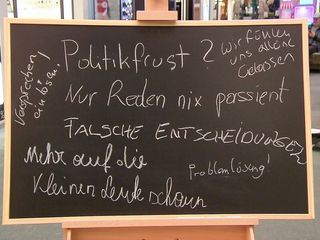 Politikfrust?
Wir fühlen
uns alleine
Gelassen
Versprechen
einlösen!
Nur Reden nix passiert
FALSCHE ENTSCHEIDUNGEN
Mehr auf die
kleinen Leute schauen
Problemlösung!